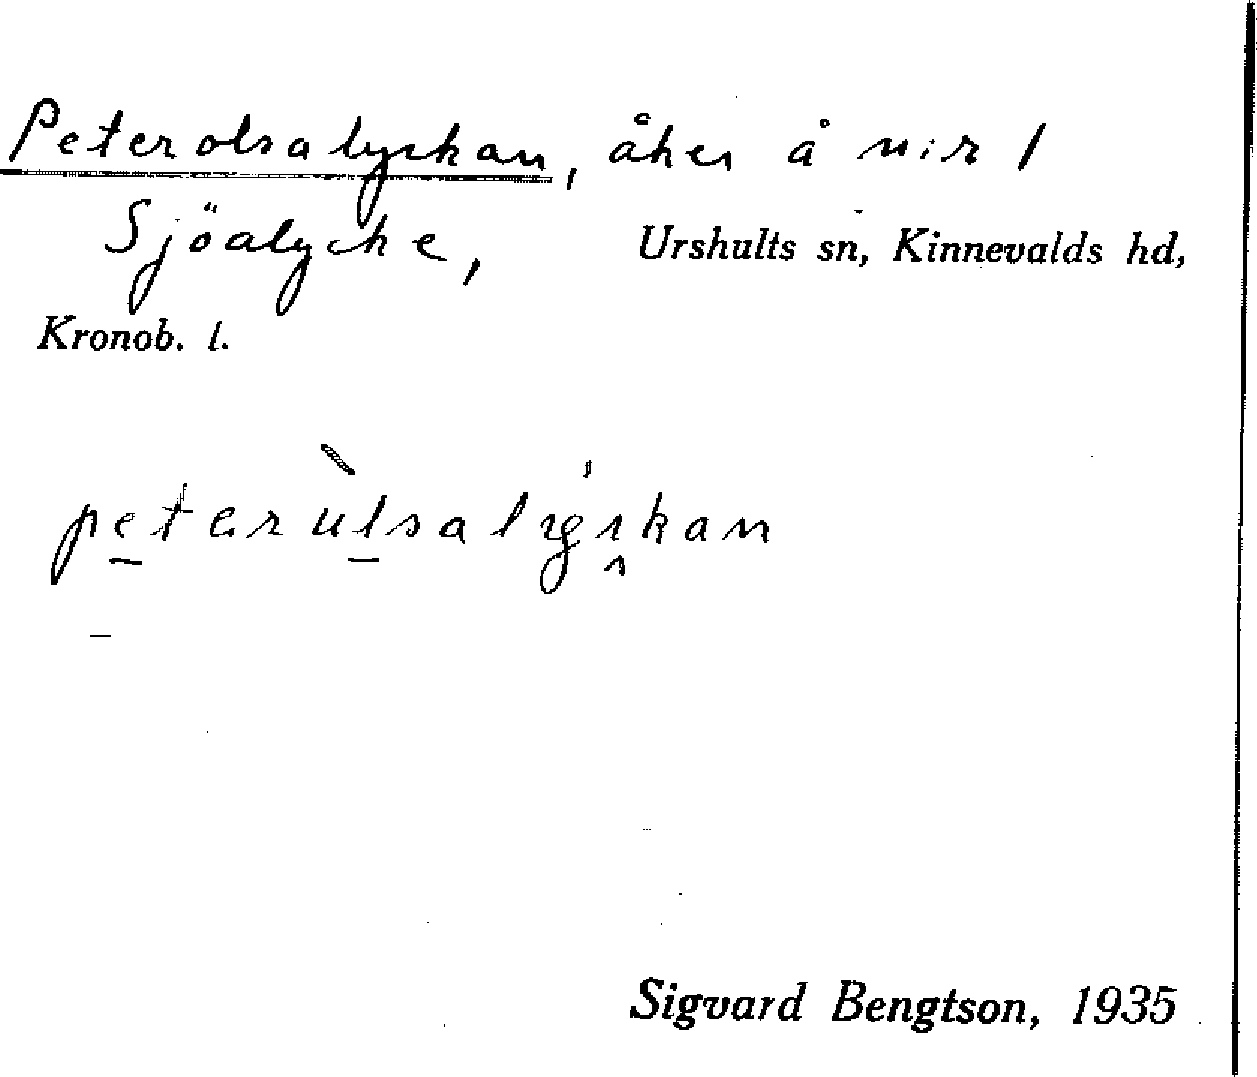 Peterolsalyckan, åker å n:r 1
Sjöalycke, Urshults sn, Kinnevalds hd,
Kronob. l.
Sigvard Bengtson, 1935